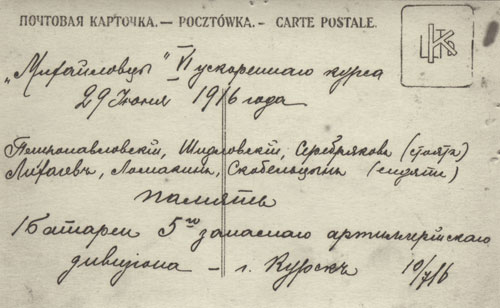 ПОЧТОВАЯ КАРТОЧКА. — POCZTÓWKA. — CARTE POSTALE.
„Михайловцы" VI ускореннаго курса
29 Июня 1916 года
Петропавловскій, Шидловскій, Серебряковъ (стоятъ)
Ломакинъ, Скобельцынъ (сидятъ)
память
1 батареи 5го запаснаго артиллерійскаго
дивизіона — г. Курскъ 10/7/16